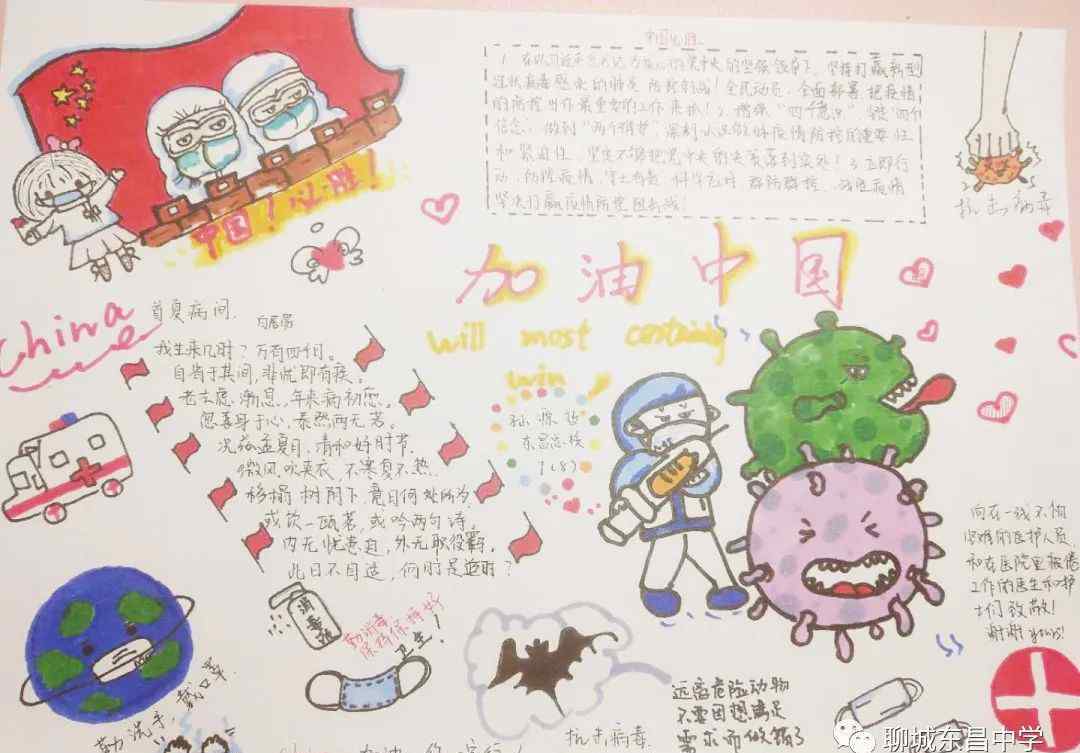 中国必胜
1、在以习近平总书记为核心的党中央的坚强领导下、坚持打赢新型
冠状病毒感染的肺炎防控战！全民动员，全面部署，把疫情
的防控当作最重要的工作来抓！2、增强“四个意识”坚定“四个
信念，做到“两个维护”深刻认识做好疫情防控的重要性
和紧迫性，坚定不移把党中央的决策落到实处！3、立即行
动，防控疫情，守土有责，科学应对，群防群控，战胜疫情
坚决打赢疫情防控阻击战！
抗击病毒
中国！必胜！
加油中国
will most certainly
win
China
首夏病间
白居易
我生来几时？万有四千日。
自省于其间，非忧即有疾。
老去虑渐息，年来病初愈。
忽喜身与心，泰然两无苦。
况兹孟夏月，清和好时节。
微风吹夹衣，不寒复不热。
移榻树阴下，竟日何所为，
或饮一瓯茗，或吟两句诗。
内无忧患迫，外无职役羁，
此日不自适，何时是适时？
东昌总校
1(8)
向在一线不怕
困难的医护人员，
和在医院里疲倦
工作的医生和护
士们致敬！
谢谢you!
消毒液
勤消毒
保持保持好
卫生！
勤洗手，戴口罩
抗击病毒
远离危险动物
不要因想满足
需求而做错了
加油
聊城东昌中学